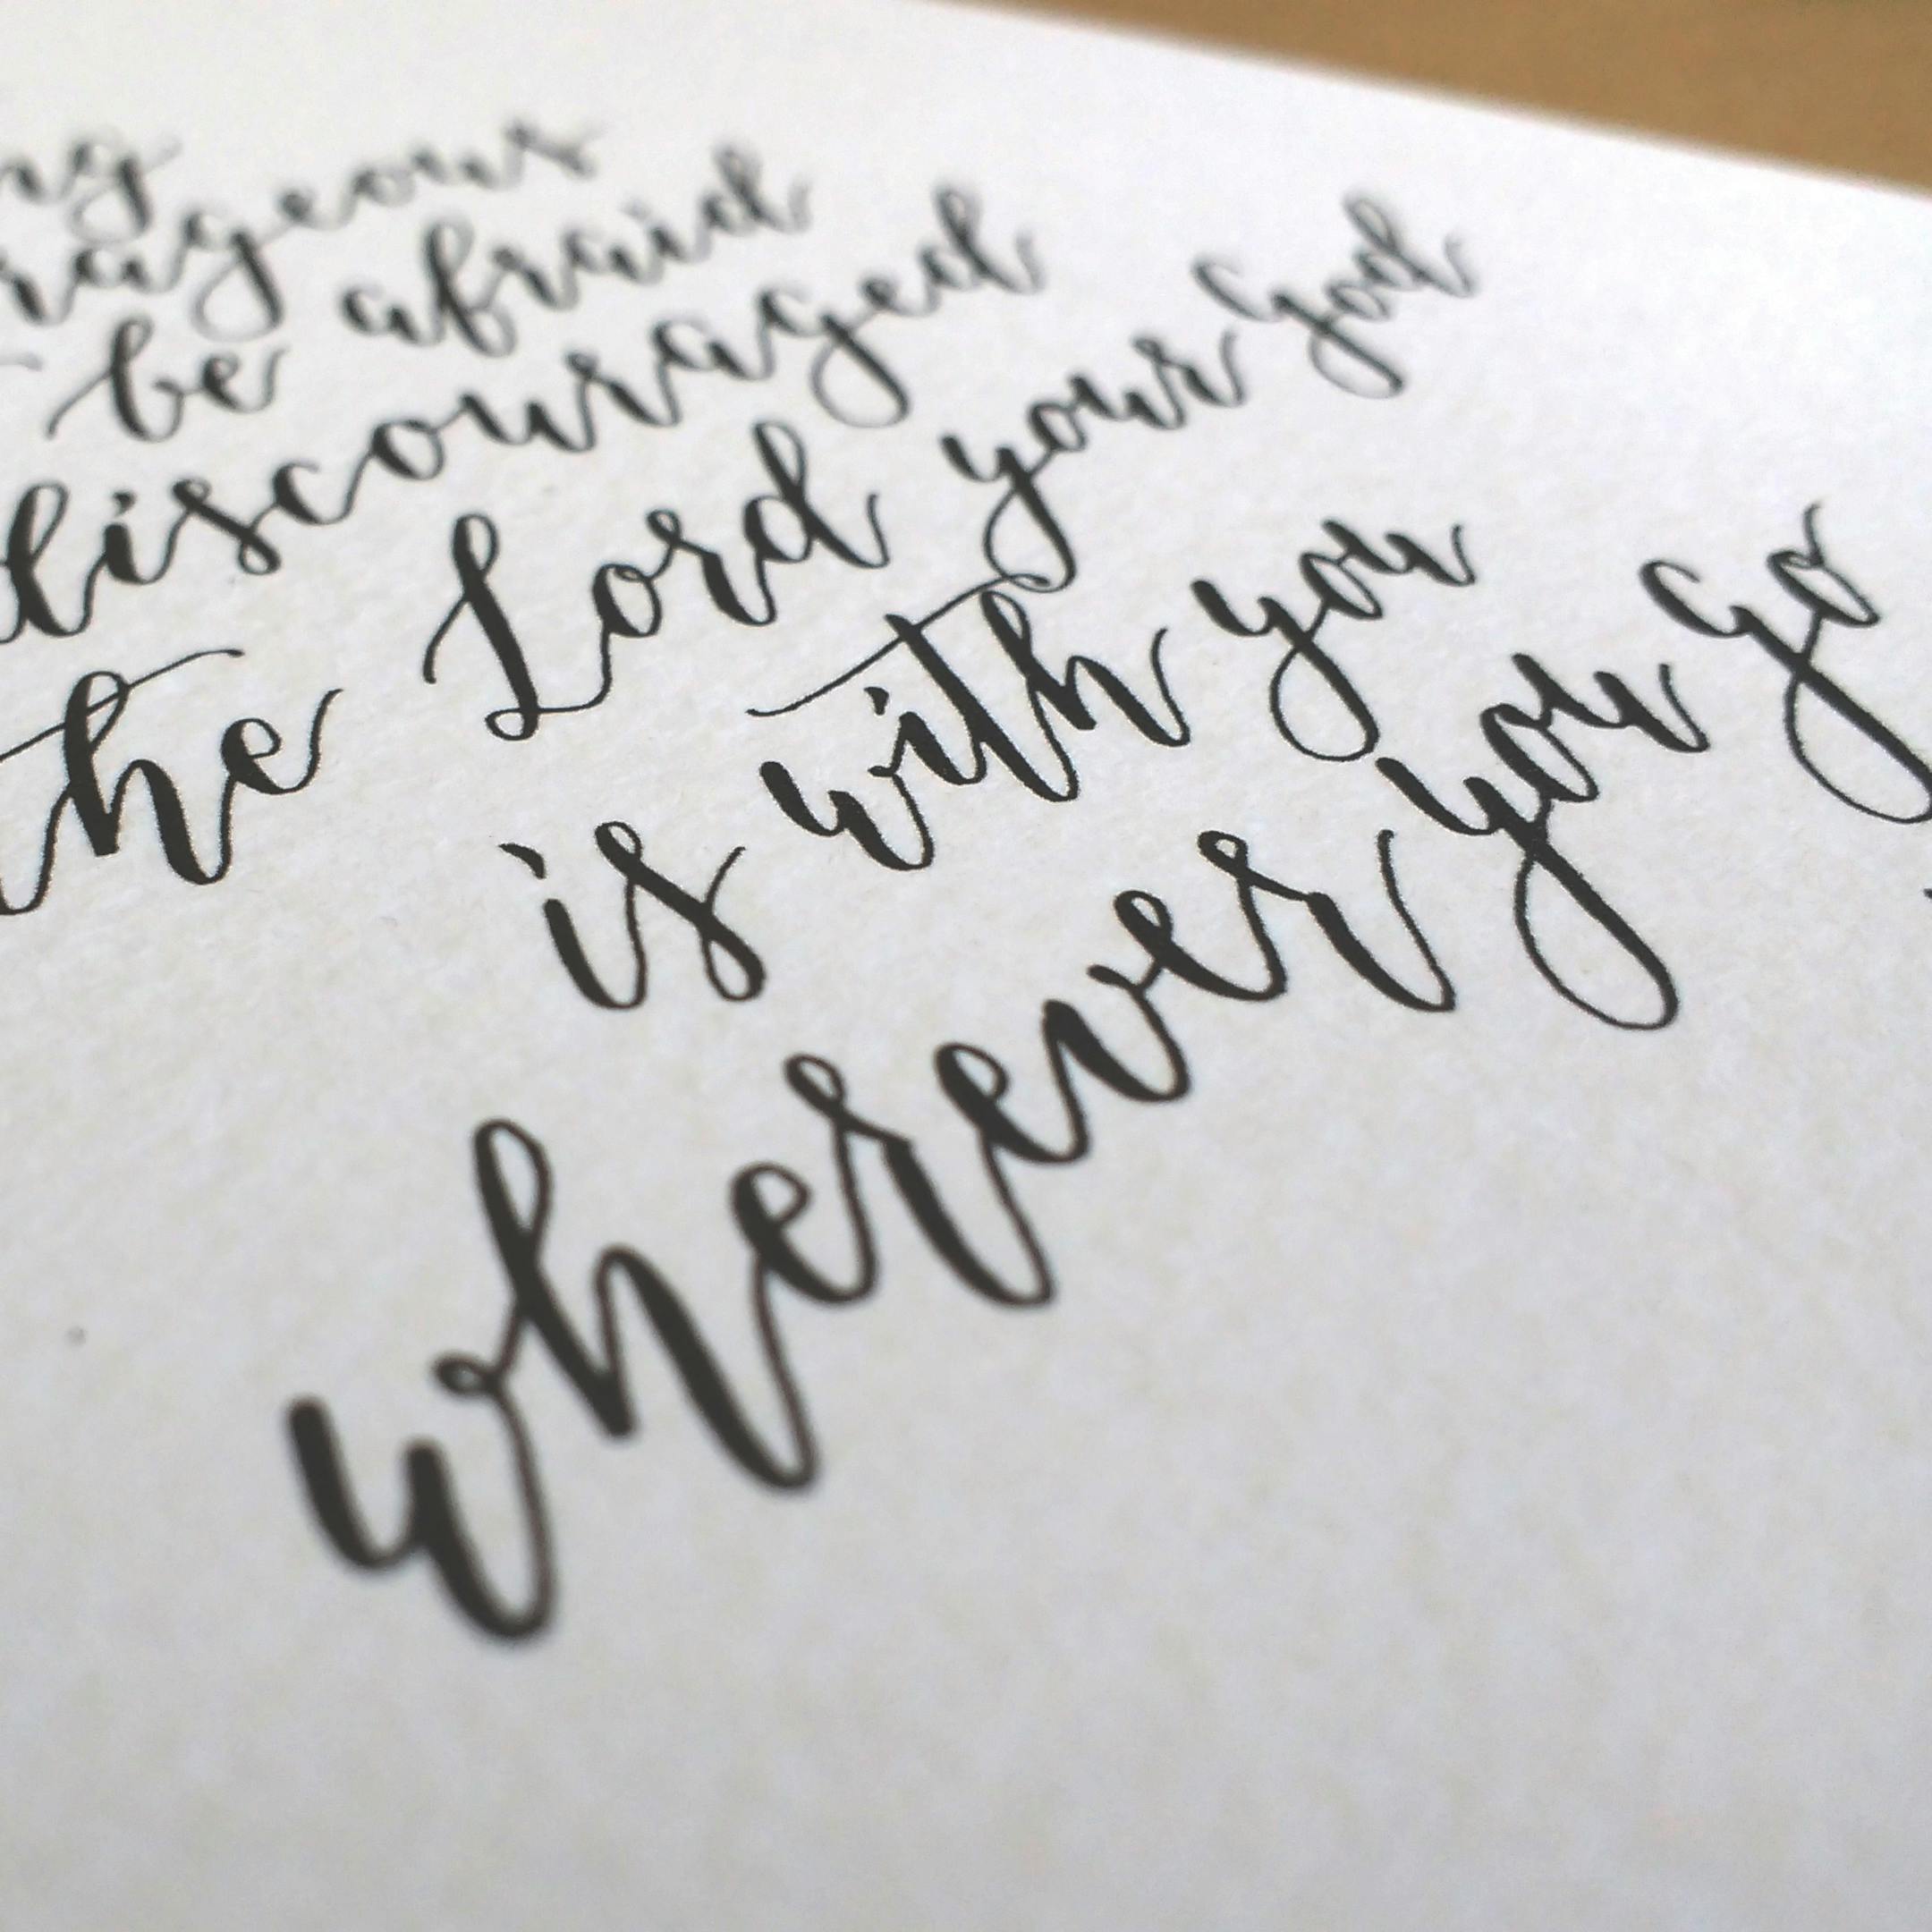 ng
rageous
be afraid
discouraged
the Lord your God
is with you
wherever you go